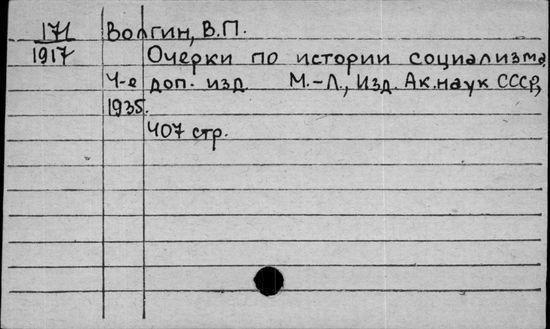 171 Волгин, В.П.
1917 Очерки по истории социализма,
4-е доп. изд. М.-Л., Изд. Ак.наук СССР,
1935.
407 стр.